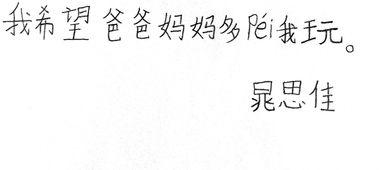 我希望爸爸妈妈多péi我玩。
晁思佳